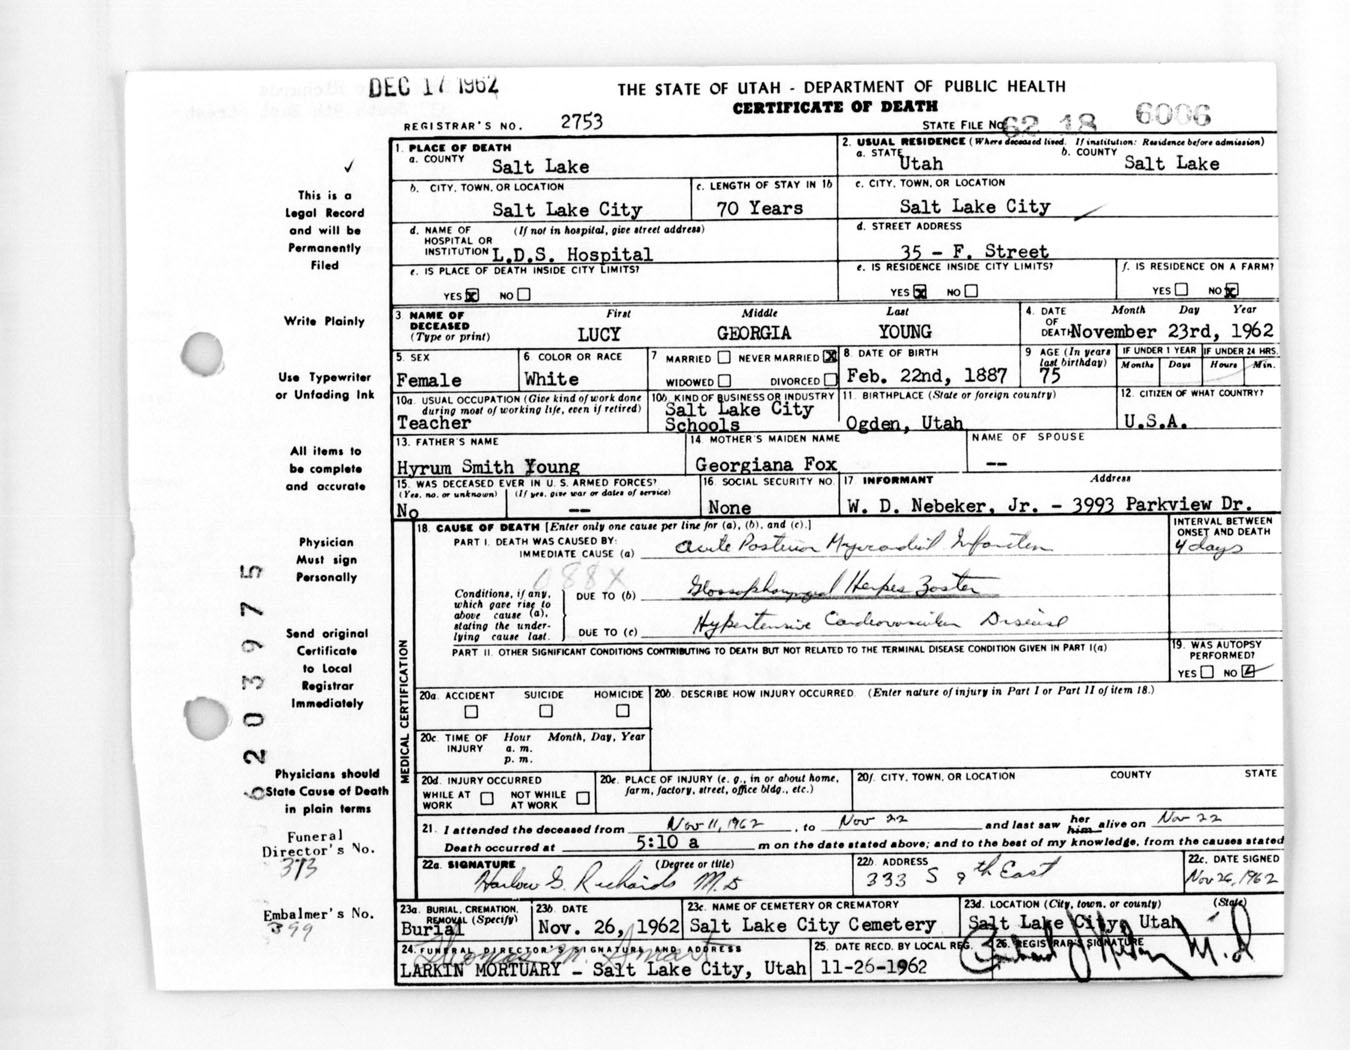 DEC 17 1962
THE STATE OF UTAH - DEPARTMENT OF PUBLIC HEALTH
CERTIFICATE OF DEATH
REGISTRAR'S NO. 2753
STATE FILE NO. 62 18 6006
This is a
Legal Record
and will be
Permanently
Filed
Write Plainly
Use Typewriter
or Unfading Ink
All items to
be complete
and accurate
Physician
Must sign
Personally
Send original
Certificate
to Local
Registrar
Immediately
Physicians should
State Cause of Death
in plain terms
Funeral
Director's No.
373
Embalmer's No.
399
1. PLACE OF DEATH
a. COUNTY Salt Lake
2. USUAL RESIDENCE (Where deceased lived. If institution: Residence before admission)
a. STATE Utah b. COUNTY Salt Lake
b. CITY, TOWN, OR LOCATION
Salt Lake City
c. LENGTH OF STAY IN 1b
70 Years
c. CITY, TOWN, OR LOCATION
Salt Lake City
d. NAME OF HOSPITAL OR INSTITUTION (If not in hospital, give street address)
L.D.S. Hospital
d. STREET ADDRESS
35 - F. Street
e. IS PLACE OF DEATH INSIDE CITY LIMITS?
YES X NO
e. IS RESIDENCE INSIDE CITY LIMITS?
YES X NO
f. IS RESIDENCE ON A FARM?
YES NO X
3. NAME OF DECEASED (Type or print)
First Middle Last
LUCY GEORGIA YOUNG
4. DATE OF DEATH Month Day Year
November 23rd, 1962
5. SEX
Female
6 COLOR OR RACE
White
7 MARRIED NEVER MARRIED X
WIDOWED DIVORCED
8 DATE OF BIRTH
Feb. 22nd, 1887
9 AGE (In years last birthday)
75
IF UNDER 1 YEAR
Months Days
IF UNDER 24 HRS.
Hours Min.
10a. USUAL OCCUPATION (Give kind of work done during most of working life, even if retired)
Teacher
10b. KIND OF BUSINESS OR INDUSTRY
Salt Lake City
Schools
11. BIRTHPLACE (State or foreign country)
Ogden, Utah
12. CITIZEN OF WHAT COUNTRY?
U.S.A.
13. FATHER'S NAME
Hyrum Smith Young
14. MOTHER'S MAIDEN NAME
Georgiana Fox
NAME OF SPOUSE
--
15. WAS DECEASED EVER IN U. S. ARMED FORCES?
(Yes, no, or unknown) (If yes, give war or dates of service)
No --
16. SOCIAL SECURITY NO.
None
17. INFORMANT Address
W. D. Nebeker, Jr. - 3993 Parkview Dr.
MEDICAL CERTIFICATION
18. CAUSE OF DEATH [Enter only one cause per line for (a), (b), and (c).]
INTERVAL BETWEEN
ONSET AND DEATH
PART I. DEATH WAS CAUSED BY:
IMMEDIATE CAUSE (a) Acute Posterior Myocardial Infarction
4 days
088X
Conditions, if any,
which gave rise to
above cause (a),
stating the under-
lying cause last.
DUE TO (b) Glossopharyngeal Herpes Zoster
DUE TO (c) Hypertensive Cardiovascular Disease
PART II. OTHER SIGNIFICANT CONDITIONS CONTRIBUTING TO DEATH BUT NOT RELATED TO THE TERMINAL DISEASE CONDITION GIVEN IN PART I(a)
19. WAS AUTOPSY
PERFORMED?
YES NO
20a. ACCIDENT SUICIDE HOMICIDE
20b. DESCRIBE HOW INJURY OCCURRED. (Enter nature of injury in Part I or Part II of item 18.)
20c. TIME OF INJURY Hour Month, Day, Year
a. m.
p. m.
20d. INJURY OCCURRED
WHILE AT WORK NOT WHILE AT WORK
20e. PLACE OF INJURY (e. g., in or about home,
farm, factory, street, office bldg., etc.)
20f. CITY, TOWN, OR LOCATION COUNTY STATE
21. I attended the deceased from Nov 11, 1962, to Nov 22 and last saw her him alive on Nov 22
Death occurred at 5:10 a m on the date stated above; and to the best of my knowledge, from the causes stated
22a. SIGNATURE (Degree or title)
Harlow G. Richards M.D
22b. ADDRESS
333 S 9th East
22c. DATE SIGNED
Nov 26, 1962
23a. BURIAL, CREMATION, REMOVAL (Specify)
Burial
23b. DATE
Nov. 26, 1962
23c. NAME OF CEMETERY OR CREMATORY
Salt Lake City Cemetery
23d. LOCATION (City, town, or county) (State)
Salt Lake City, Utah
24. FUNERAL DIRECTOR'S SIGNATURE AND ADDRESS
Thomas M.
LARKIN MORTUARY - Salt Lake City, Utah
25. DATE RECD. BY LOCAL REG.
11-26-1962
26. REGISTRAR'S SIGNATURE
M.D
6203975